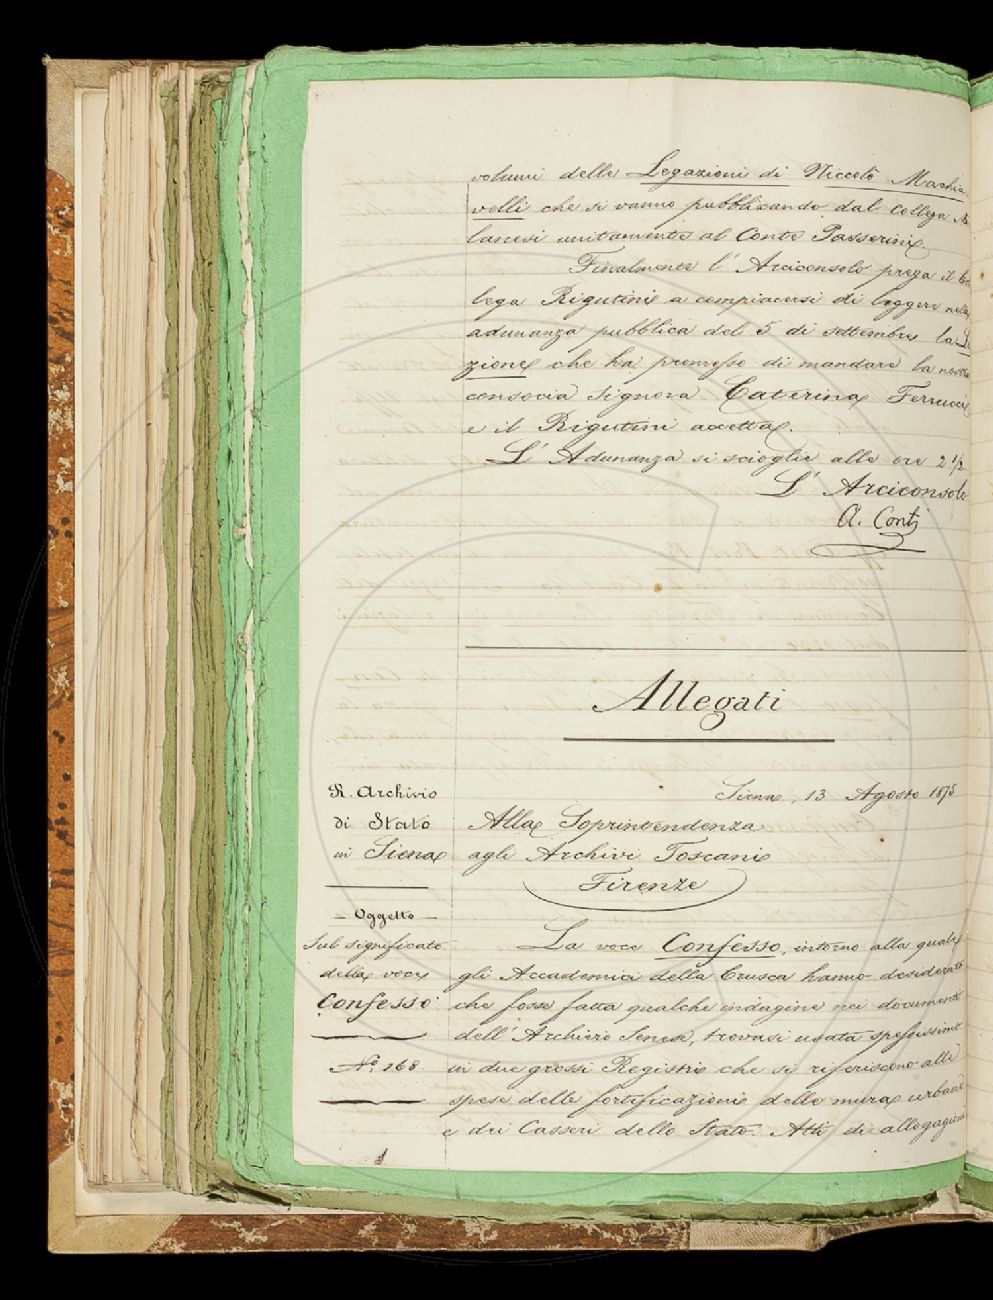 volumi delle Legazioni di Niccolò Machia
velli che si vanno pubblicando dal collega Mi
lanesi unitamente al Conte Passerini.
Finalmente l'Arciconsolo prega il Col
lega Rigutini a compiacersi di leggere nella
adunanza pubblica del 5 di settembre la Le
zione che ha promesso di mandare la nostra
consocia Signora Caterina Ferrucci
e il Rigutini accetta.
L'Adunanza si scioglie alle ore 2 1/2
L'Arciconsolo
A. Conti
Allegati
R. Archivio
di Stato
in Siena
- Oggetto -
Sul significato
della voce
Confesso
N.° 168.
Siena, 13 Agosto 1875
Alla Soprintendenza
agli Archivi Toscani
Firenze
La voce Confesso, intorno alla quale
gli Accademici della Crusca hanno desiderato
che fosse fatta qualche indagine nei documenti
dell'Archivio Senese, trovasi usata spessissimo
in due grossi Registri che si riferiscono alle
spese delle fortificazioni delle mura urbane
e dei Casseri dello Stato. Atti di allogagione